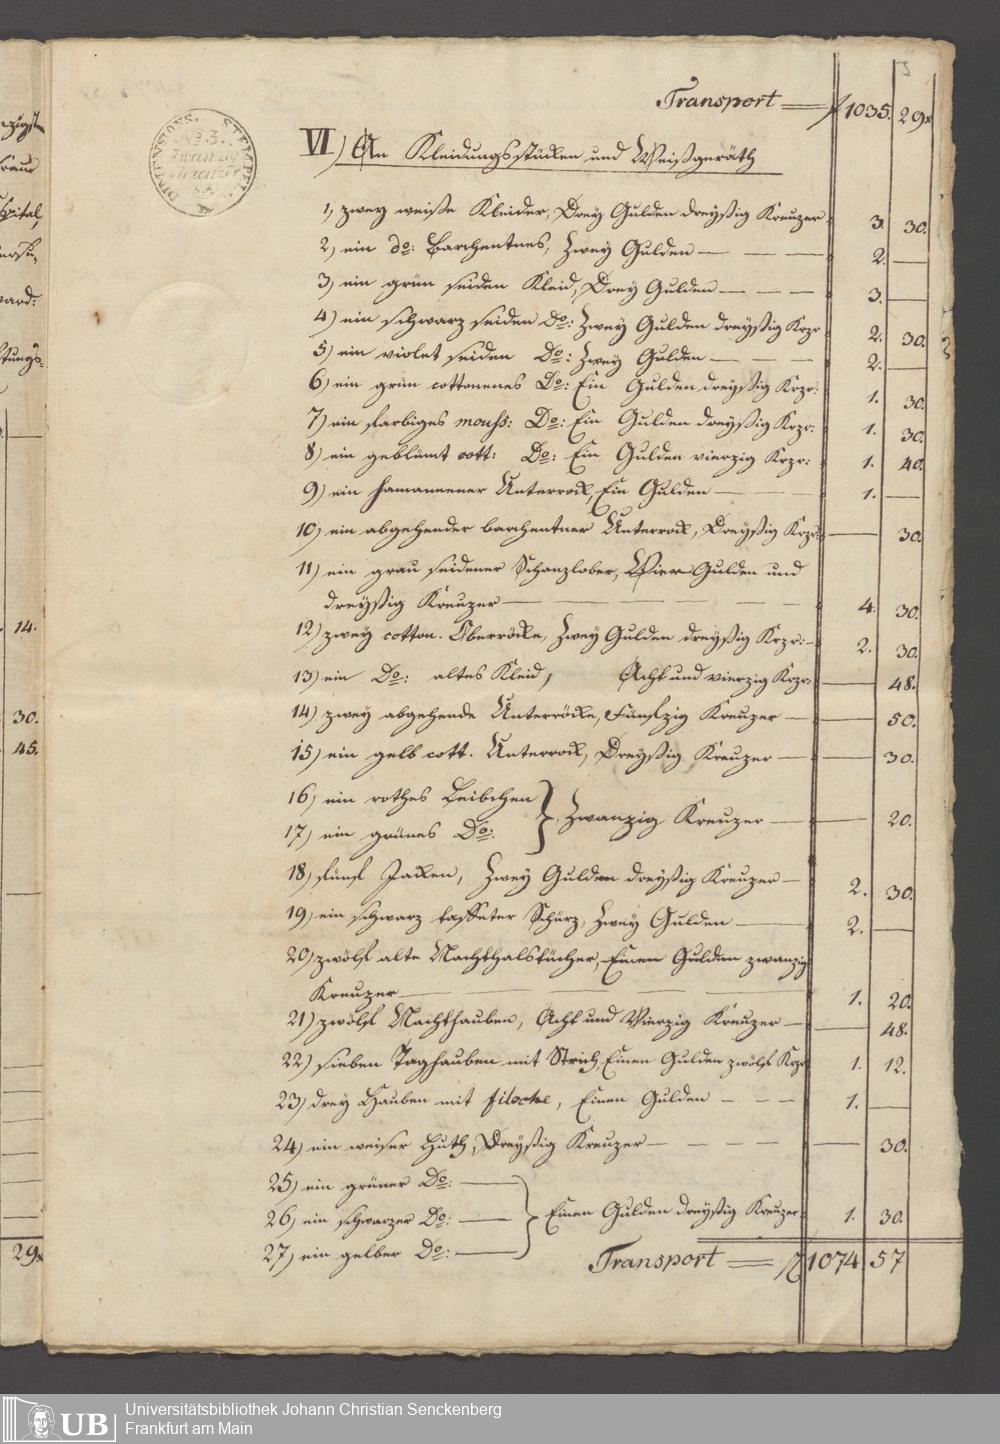 Transport = f 1035. 29x
DIMENSIONS. STEMPEL.
No 3.
Zwanzig
Kreuzer
VI) An Kleidungsstücken und Weißgeräth
1) zwey weiße Kleider, Drey Gulden dreyßig Kreuzer 3. 30.
2) ein do: Barchentnes, Zwey Gulden — — — 2. —
3) ein grün seiden Kleid, Drey Gulden — — — 3. —
4) ein schwarz seiden Do: Zwey Gulden dreyßig Krzr 2. 30.
5) ein violet seiden Do: Zwey Gulden — — — 2. —
6) ein grün cottonenes Do: Ein Gulden dreyßig Krzr: 1. 30.
7) ein farbiges mouss: Do: Ein Gulden dreyßig Krzr: 1. 30.
8) ein geblümt cott: Do: Ein Gulden vierzig Krzr: 1. 40.
9) ein Unterrock, Ein Gulden — — — 1. —
10) ein abgehender barchentner Unterrock, Dreyßig Krzr: — 30.
11) ein grau seidener Schanzlober, Vier Gulden und
dreyßig Kreuzer — — — — 4. 30.
12) zwey cotton. Oberröcke, Zwey Gulden dreyßig Krzr: — 2. 30.
13) ein Do: altes Kleid, Acht und vierzig Krzr: — 48.
14) zwey abgehende Unterröcke, Fünfzig Kreuzer — — 50.
15) ein gelb cott. Unterrock, Dreyßig Kreuzer — — 30.
16) ein rothes Leibchen
17) ein grünes Do: } Zwanzig Kreuzer — — 20.
18) fünf Jacken, Zwey Gulden dreyßig Kreuzer — 2. 30.
19) ein schwarz tafseter Schürz, Zwey Gulden — 2. —
20) zwölf alte Nachthalstücher, Einen Gulden zwanzig
Kreuzer — — — — 1. 20.
21) zwölf Nachthauben, Acht und Vierzig Kreuzer — — 48.
22) sieben Taghauben mit Strich, Einen Gulden zwölf Krzr 1. 12.
23) drey Hauben mit filoche, Einen Gulden — — — 1. —
24) ein weiser Huth, Dreyßig Kreuzer — — — — — 30.
25) ein grüner Do: —
26) ein schwarzer Do: — } Einen Gulden dreyßig Kreuzer: 1. 30.
27) ein gelber Do: —
Transport = f 1074 57
14.
30.
45.
29x
UB Universitätsbibliothek Johann Christian Senckenberg
Frankfurt am Main